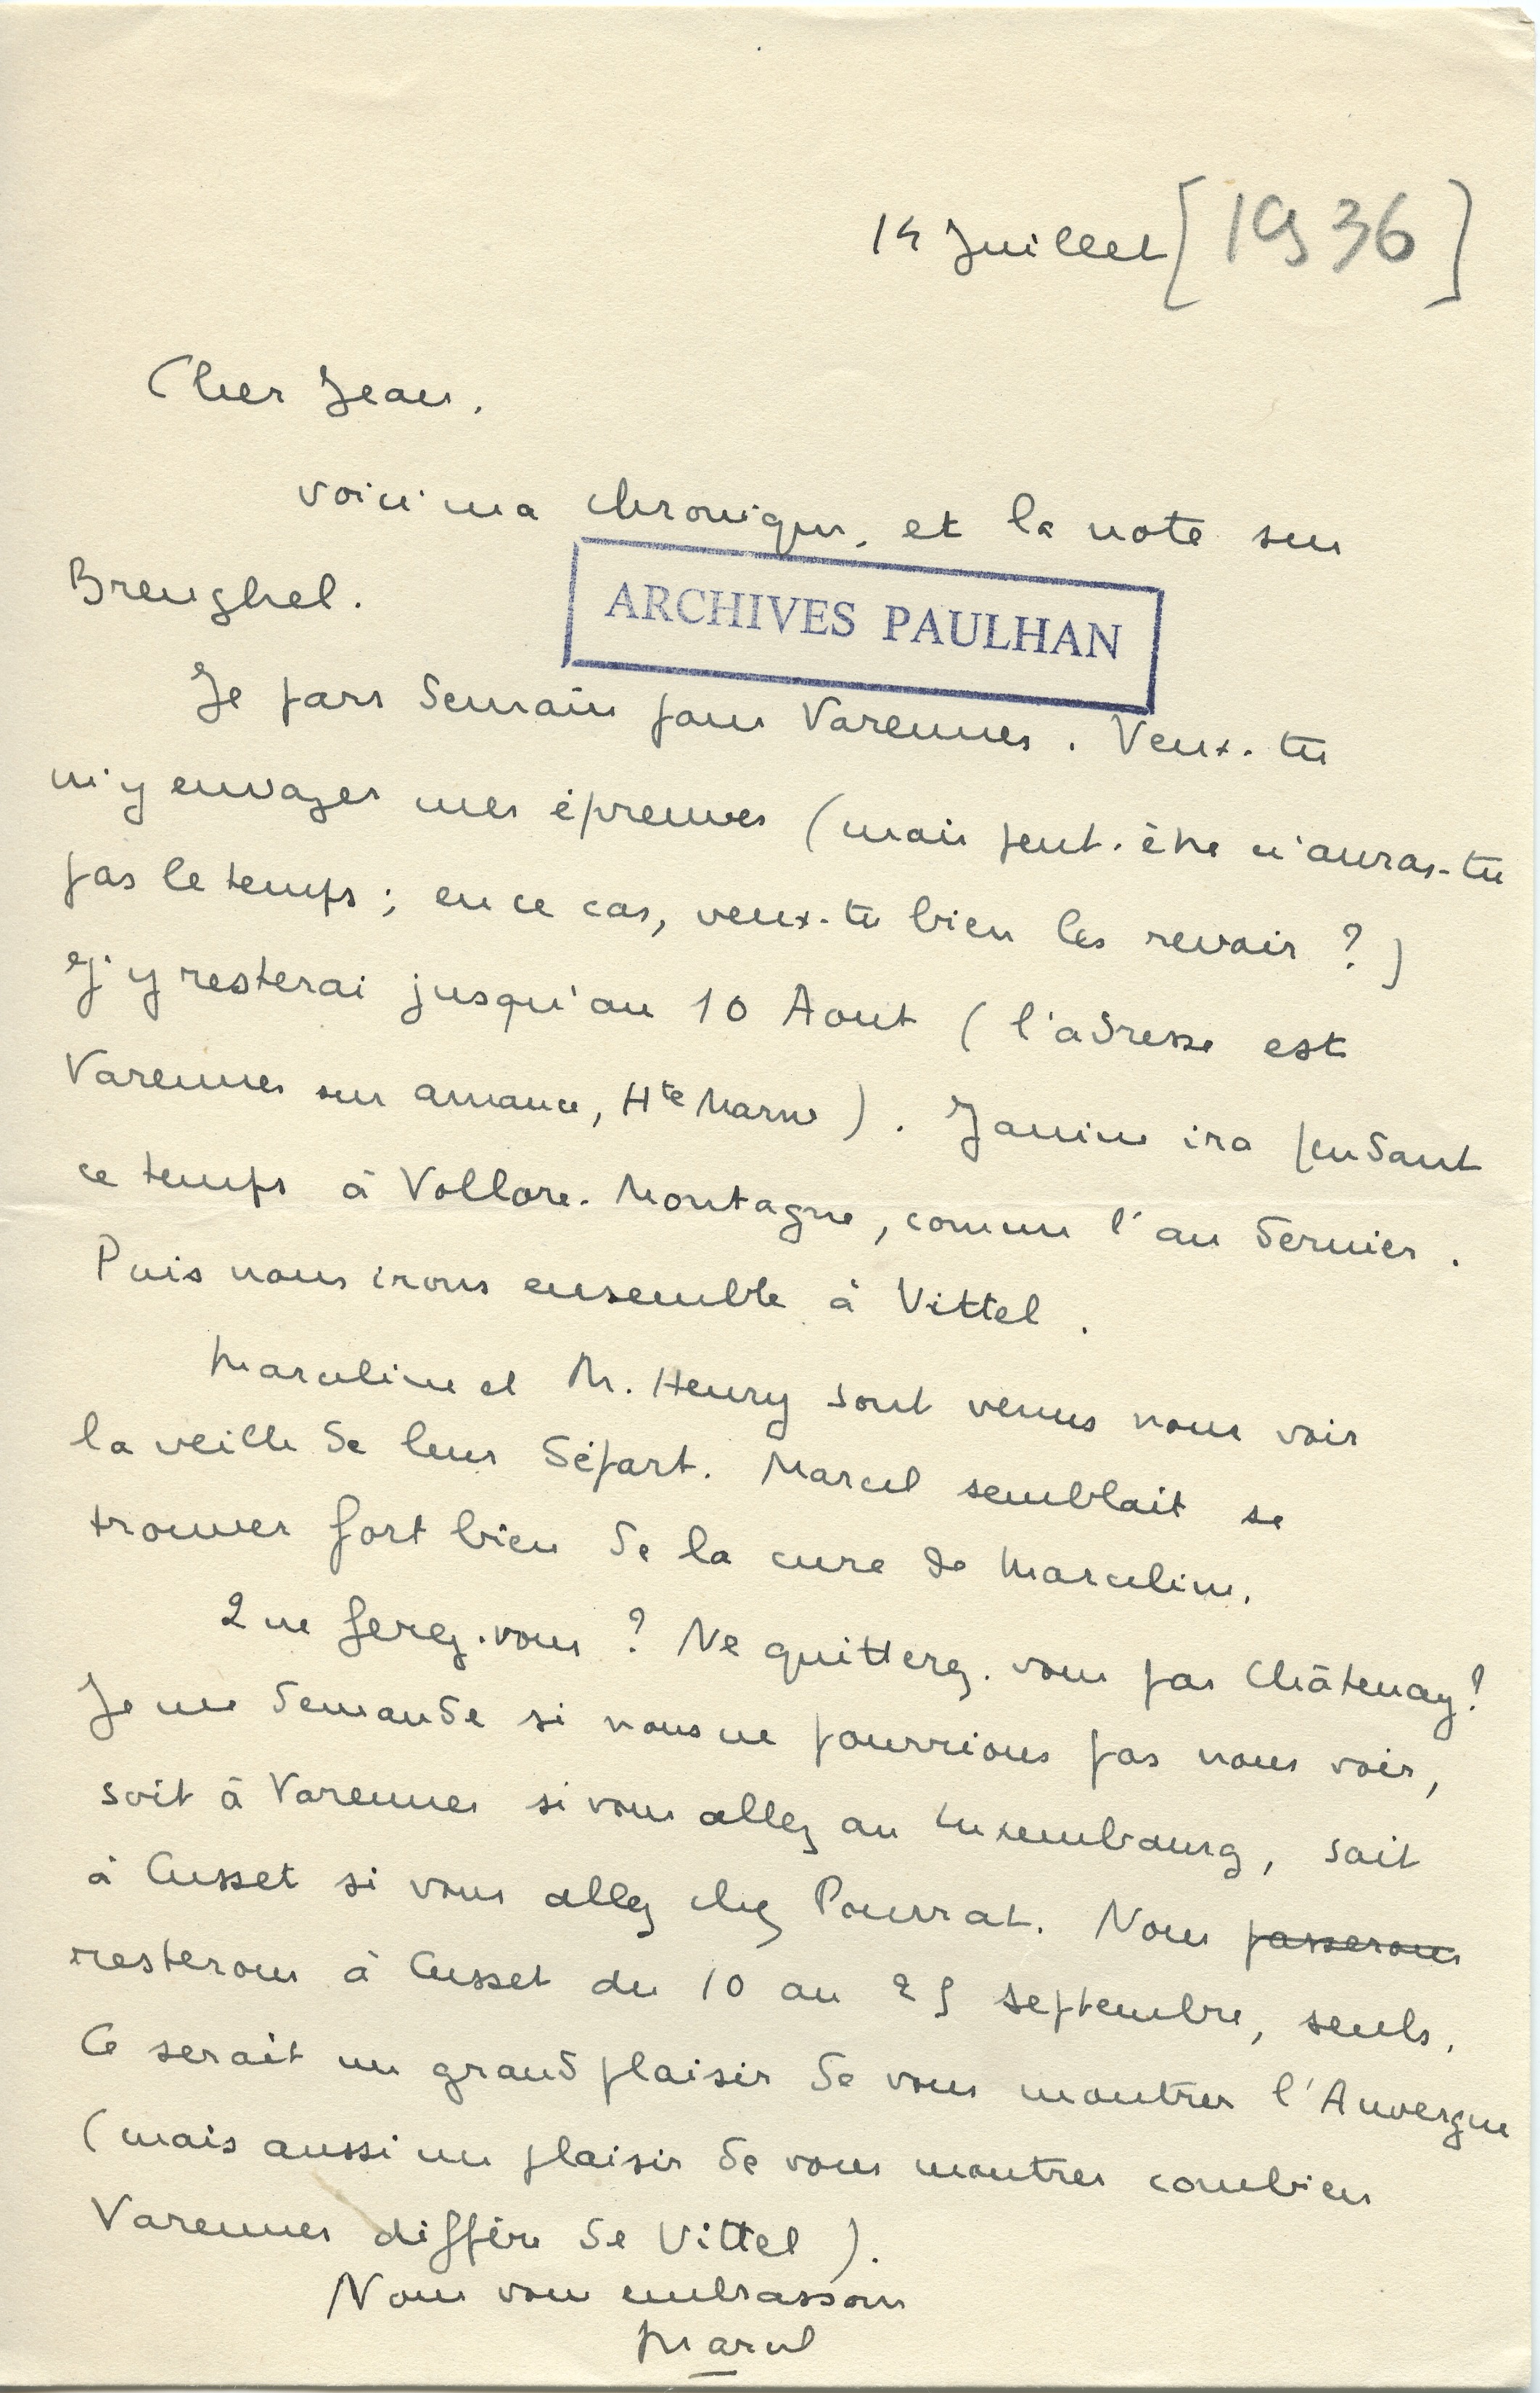 14 Juillet [1936]
Cher Jean.
voici ma chronique. et la note sur
Breughel.
ARCHIVES PAULHAN
Je pars demain pour Varennes. Veux-tu
m'y envoyer mes épreuves (mais peut-être n'auras-tu
pas le temps ; en ce cas, veux-tu bien les revoir ?)
J'y resterai jusqu'au 10 Aout (l'adresse est
Varennes sur amance, Hte Marne). Janine ira pendant
ce temps à Vollore-Montagne, comme l'an dernier.
Puis nous irons ensemble à Vittel.
Marceline et M. Henry sont venus nous voir
la veille de leur départ. Marcel semblait se
trouver fort bien de la cure de Marceline.
Que ferez-vous ? Ne quitterez-vous pas Châtenay ?
Je me demande si nous ne pourrions pas nous voir,
soit à Varennes si vous allez au Luxembourg, soit
à Cusset si vous allez chez Pourrat. Nous passerons
resterons à Cusset du 10 au 25 septembre, seuls.
Ce serait un grand plaisir de vous montrer l'Auvergne
(mais aussi un plaisir de vous montrer combien
Varennes diffère de Vittel).
Nous vous embrassons
Marcel